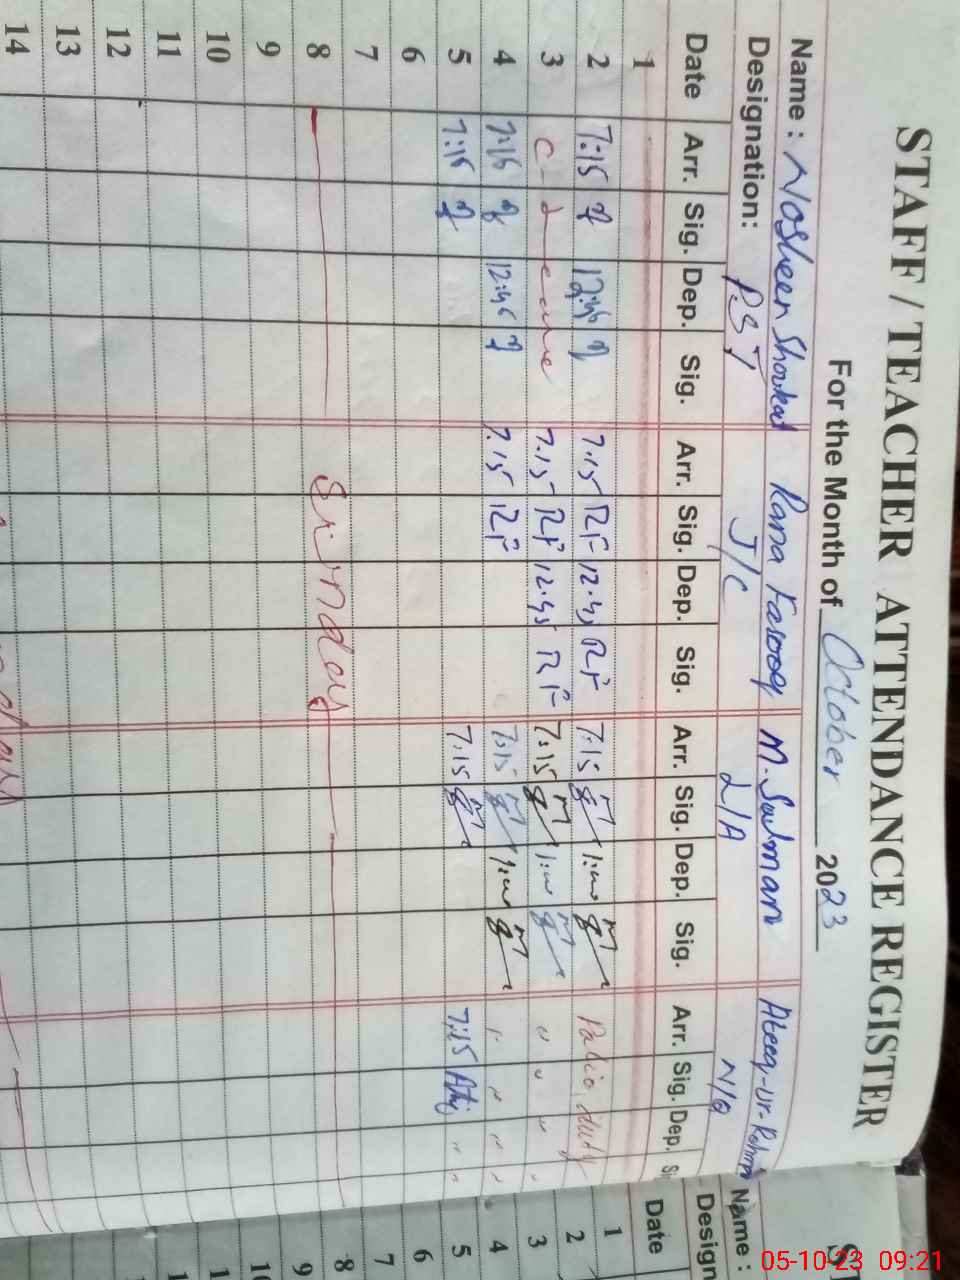 STAFF / TEACHER ATTENDANCE REGISTER
For the Month of October 2023
Name : Nosheen Shoukat Rana Farooq M. Salman Ateeq-ur-Rehman
Designation: P.S.T J/C L/A N/Q
Date Arr. Sig. Dep. Sig. Arr. Sig. Dep. Sig. Arr. Sig. Dep. Sig. Arr. Sig. Dep. Si
1
2 7:15 12:45 7.15 RF 12.45 RF 7:15 1:00 Polio duty
3 C-Leave 7.15 RF 12.45 RF 7:15 1:00 " " " "
4 7:15 12:45 7.15 RF 7:15 1:00 " " " "
5 7:15 7:15 7:15 Atiq " "
6
7
8 Sunday
9
10
11
12
13
14
S
Name :
Design
Date
1
2
3
4
5
6
7
8
9
10
1
1
05-10-23 09:21